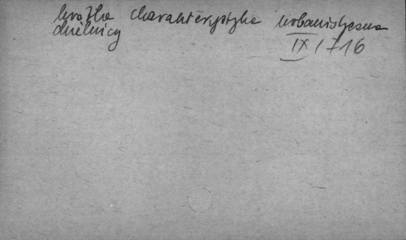 krótka charakterystyka urbanistyczna
dzielnicy
IX/716